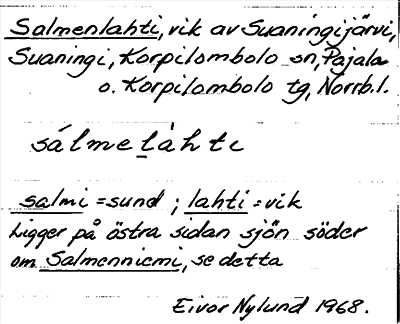 Salmenlahti, vik av Suaningijärvi,
Suaningi, Korpilombolo sn, Pajala
o. Korpilombolo tg, Norrb.l.
sálmelàhti
salmi = sund ; lahti = vik
Ligger på östra sidan sjön söder
om Salmenniemi, se detta
Eivor Nylund 1968.